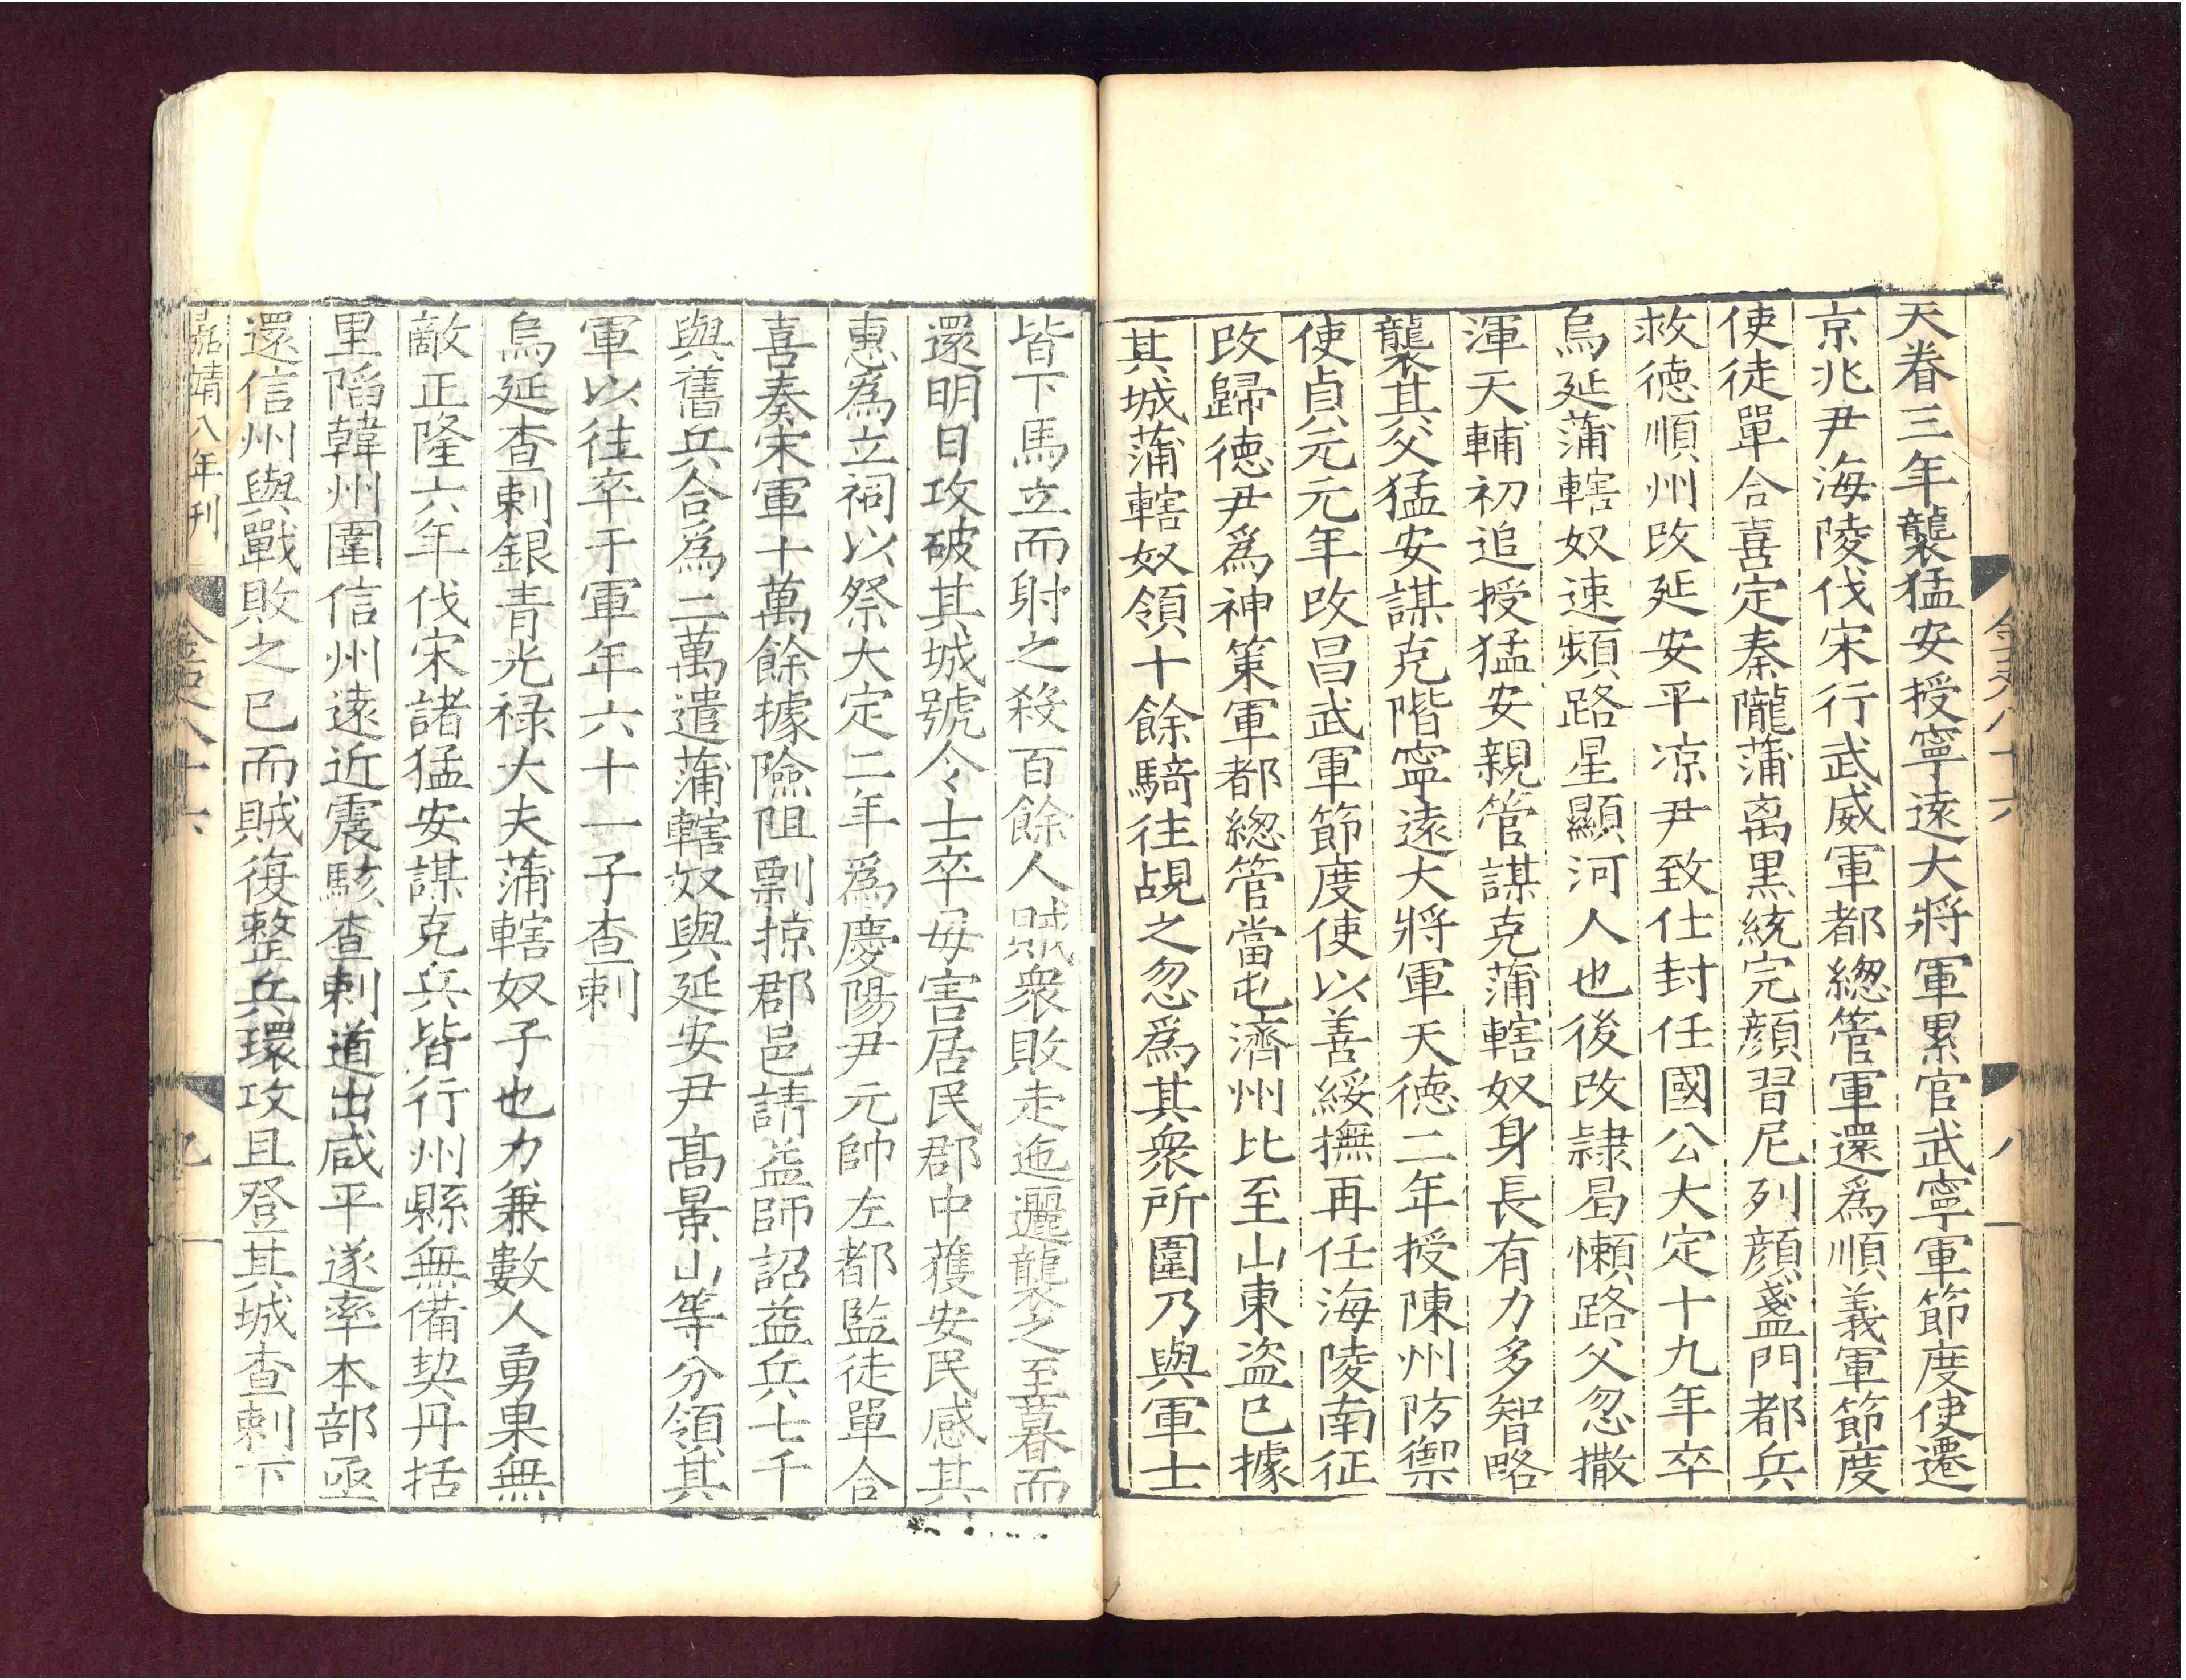 天眷三年襲猛安授寧遠大將軍累官武寧軍節度使遷
京兆尹海陵伐宋行武威軍都緫管軍還爲順義軍節度
使徒單合喜定秦隴蒲离黑統完顔習尼列顔盞門都兵
救德順州改延安平凉尹致仕封任國公大定十九年卒
烏延蒲轄奴速頻路星顯河人也後改隷曷懶路父忽撒
渾天輔初追授猛安親管謀克蒲轄奴身長有力多智略
襲其父猛安謀克階寧遠大將軍天德二年授陳州防禦
使貞元元年改昌武軍節度使以善綏撫再任海陵南征
改歸德尹爲神策軍都緫管當屯濟州比至山東盜已據
其城蒲轄奴領十餘騎往覘之忽爲其衆所圍乃與軍士
金史八十六
八
皆下馬立而射之殺百餘人賊衆敗走迤邐襲之至暮而
還明日攻破其城號令士卒毋害居民郡中獲安民感其
惠爲立祠以祭大定二年爲慶陽尹元帥左都監徒單合
喜奏宋軍十萬餘據險阻剽掠郡邑請益師詔益兵七千
與舊兵合爲二萬遣蒲轄奴與延安尹高景山等分領其
軍以往卒于軍年六十一子查剌
烏延查剌銀青光禄大夫蒲轄奴子也力兼數人勇果無
敵正隆六年伐宋諸猛安謀克兵皆行州縣無備契丹括
里陷韓州圍信州遠近震駭查剌道出咸平遂率本部亟
還信州與戰敗之已而賊復整兵環攻且登其城查剌下
嘉靖八年刊
金史八十六
九